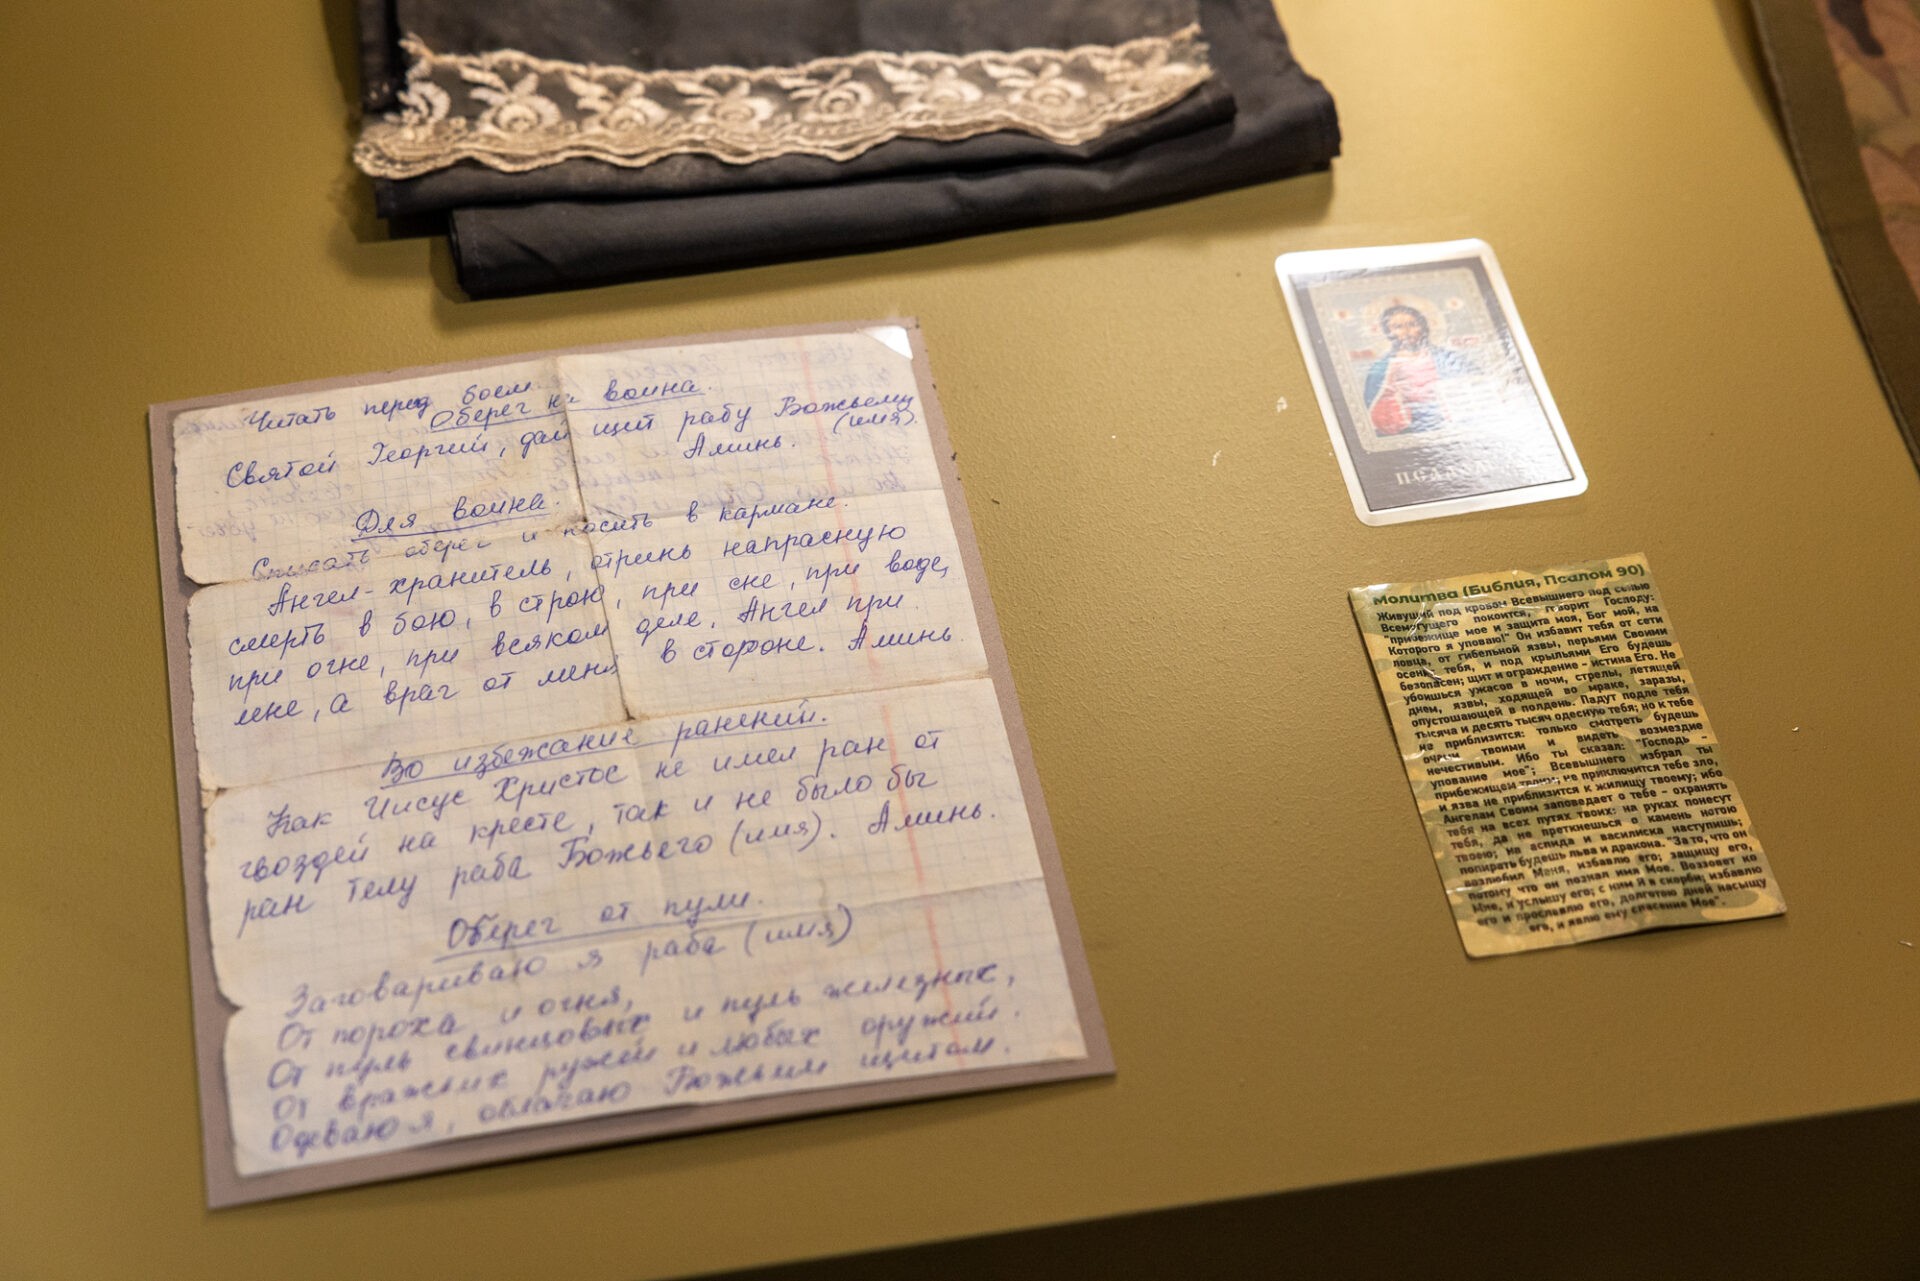 Читать перед боем
Оберег на воина.
Святой Георгий, дай щит рабу Божьему
(имя).
Аминь.
Для воина.
Списать оберег и носить в кармане.
Ангел-хранитель, отринь напрасную
смерть в бою, в строю, при сне, при воде,
при огне, при всяком деле. Ангел при
мне, а враг от меня в стороне. Аминь.
Во избежание ранений.
Как Иисус Христос не имел ран от
гвоздей на кресте, так и не было бы
ран телу раба Божьего (имя). Аминь.
Оберег от пули.
Заговариваю я раба (имя)
От пороха и огня,
От пуль свинцовых и пуль железных,
От вражьих ружей и любых оружий.
Одеваю я, облагаю Божьим щитом.
Молитва (Библия, Псалом 90)
Живущий под кровом Всевышнего под сенью
Всемогущего покоится, говорит Господу:
"прибежище мое и защита моя, Бог мой, на
Которого я уповаю!" Он избавит тебя от сети
ловца, от гибельной язвы, перьями Своими
осенит тебя, и под крыльями Его будешь
безопасен; щит и ограждение - истина Его. Не
убоишься ужасов в ночи, стрелы, летящей
днем, язвы, ходящей во мраке, заразы,
опустошающей в полдень. Падут подле тебя
тысяча и десять тысяч одесную тебя; но к тебе
не приблизится: только смотреть будешь
очами твоими и видеть возмездие
нечестивым. Ибо ты сказал: "Господь -
упование мое"; Всевышнего избрал ты
прибежищем твоим; не приключится тебе зло,
и язва не приблизится к жилищу твоему; ибо
Ангелам Своим заповедает о тебе - охранять
тебя на всех путях твоих: на руках понесут
тебя, да не преткнешься о камень ногою
твоею; на аспида и василиска наступишь;
попирать будешь льва и дракона. "За то, что он
возлюбил Меня, избавлю его; защищу его,
потому что он познал имя Мое. Воззовет ко
Мне, и услышу его; с ним Я в скорби; избавлю
его и прославлю его, долготою дней насыщу
его, и явлю ему спасение Мое".